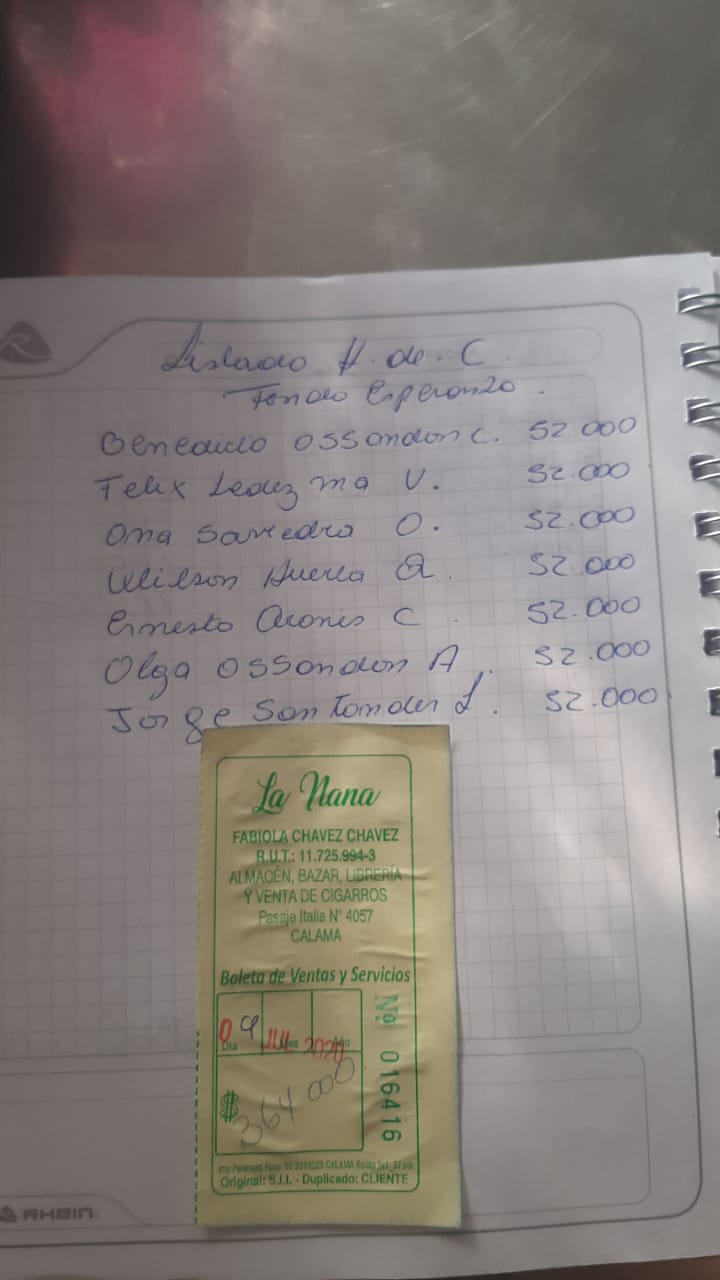 Listado H. de. C.
Fondo Esperanza.
Benedicto Ossandon C. 52.000
Felix Ledezma V. 52.000
Ana Savedra O. 52.000
Wilson Huerta Q. 52.000
Ernesto Aronis C. 52.000
Olga Ossandon A. 52.000
Jorge Santander L. 52.000
La Nana
FABIOLA CHAVEZ CHAVEZ
R.U.T.: 11.725.994-3
ALMACÉN, BAZAR, LIBRERÍA
Y VENTA DE CIGARROS
Pasaje Italia N° 4057
CALAMA
Boleta de Ventas y Servicios
09 JUL 2020
Día Mes Año
Nº 016416
$ 364 000
CALAMA
Original: S.I.I. - Duplicado: CLIENTE
RHEIN